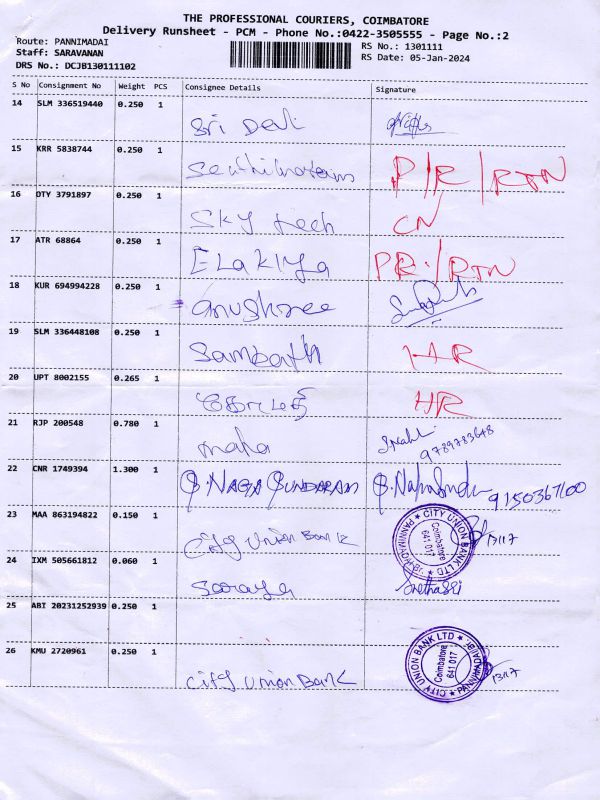 THE PROFESSIONAL COURIERS, COIMBATORE
Delivery Runsheet - PCM - Phone No.:0422-3505555 - Page No.:2
Route: PANNIMADAI
RS No.: 1301111
Staff: SARAVANAN
RS Date: 05-Jan-2024
DRS No.: DCJB130111102
S No Consignment No Weight PCS Consignee Details Signature
14 SLM 336519440 0.250 1
Sri Devi
15 KRR 5838744 0.250 1
P/R/RTN
16 DTY 3791897 0.250 1
Sky tech CN
17 ATR 68864 0.250 1
Elakiya PR/RTN
18 KUR 694994228 0.250 1
anushree
19 SLM 336448108 0.250 1
Sambath HR
20 UPT 8002155 0.265 1
கோமதி HR
21 RJP 200548 0.780 1
maha 9789783648
22 CNR 1749394 1.300 1
NAGA SUNDARAM 9150367100
23 MAA 863194822 0.150 1
City Union Bank 13117
CITY UNION BANK LTD PANNIMADAI Br. Coimbatore 641 017
24 IXM 505661812 0.060 1
25 ABI 20231252939 0.250 1
26 KMU 2720961 0.250 1
City Union Bank 13117
CITY UNION BANK LTD PANNIMADAI Br. Coimbatore 641 017